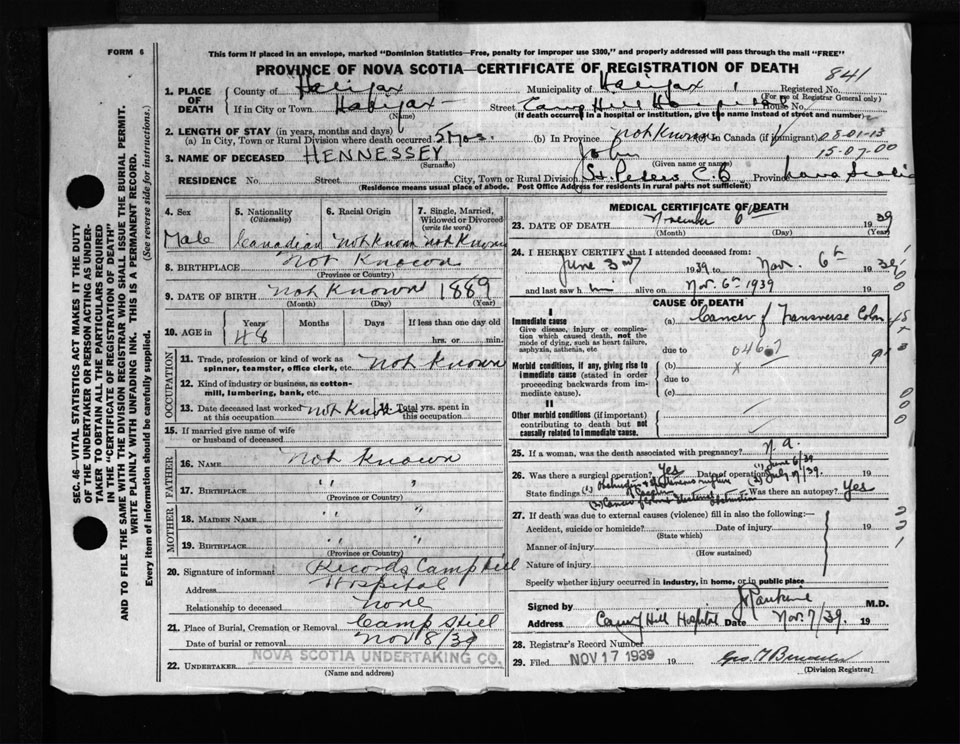 FORM 6
This form if placed in an envelope, marked "Dominion Statistics—Free, penalty for improper use $300," and properly addressed will pass through the mail "FREE"
PROVINCE OF NOVA SCOTIA—CERTIFICATE OF REGISTRATION OF DEATH
841
1. PLACE OF DEATH
County of Halifax
Municipality of Halifax
Registered No.
(For use of Registrar General only)
If in City or Town Halifax
(Name)
Street Camp Hill Hospital House No.
(If death occurred in a hospital or institution, give the name instead of street and number)
2. LENGTH OF STAY (in years, months and days)
(a) In City, Town or Rural Division where death occurred 5 Mos.
(b) In Province not known (c) In Canada (if immigrant)
08-01-13
15-07-00
3. NAME OF DECEASED HENNESSEY John
(Surname) (Given name or names)
RESIDENCE No. Street City, Town or Rural Division St. Peters C.B. Province Nova Scotia
(Residence means usual place of abode. Post Office Address for residents in rural parts not sufficient)
4. Sex
Male
5. Nationality
(Citizenship)
Canadian
6. Racial Origin
not known
7. Single, Married, Widowed or Divorced
(write the word)
not known
8. BIRTHPLACE not known
(Province or Country)
9. DATE OF BIRTH not known 1889
(Month) (Day) (Year)
10. AGE in
Years Months Days If less than one day old
48
hrs. or min.
OCCUPATION
11. Trade, profession or kind of work as spinner, teamster, office clerk, etc. not known
12. Kind of industry or business, as cotton-mill, lumbering, bank, etc.
13. Date deceased last worked at this occupation not known
14. Total yrs. spent in this occupation
15. If married give name of wife or husband of deceased
FATHER
16. NAME not known
17. BIRTHPLACE " "
(Province or Country)
MOTHER
18. MAIDEN NAME " "
19. BIRTHPLACE " "
(Province or Country)
20. Signature of informant Records Camp Hill
Address Hospital
Relationship to deceased none
21. Place of Burial, Cremation or Removal Camp Hill
Date of burial or removal Nov 8/39
22. UNDERTAKER NOVA SCOTIA UNDERTAKING CO.
(Name and address)
MEDICAL CERTIFICATE OF DEATH
23. DATE OF DEATH November 6th 1939
(Month) (Day) (Year)
24. I HEREBY CERTIFY that I attended deceased from:
June 3rd 1939 to Nov. 6th 1939
and last saw him alive on Nov. 6th 1939
CAUSE OF DEATH
I
Immediate cause
Give disease, injury or complication which caused death, not the mode of dying, such as heart failure, asphyxia, asthenia, etc
(a) Cancer of Transverse Colon
due to
Morbid conditions, if any, giving rise to immediate cause (stated in order proceeding backwards from immediate cause).
(b)
due to
(c)
II
Other morbid conditions (if important) contributing to death but not causally related to immediate cause.
25. If a woman, was the death associated with pregnancy? n.a.
26. Was there a surgical operation? Yes Date of operation (1) June 6/39 (2) July 19/39.
State findings
Was there an autopsy? Yes
27. If death was due to external causes (violence) fill in also the following:
Accident, suicide or homicide? Date of injury 19
(State which)
Manner of injury
(How sustained)
Nature of injury
Specify whether injury occurred in industry, in home, or in public place
Signed by M.D.
Address Camp Hill Hospital Date Nov. 7/39. 19
28. Registrar's Record Number
29. Filed NOV 17 1939 19
(Division Registrar)
SEC. 46—VITAL STATISTICS ACT MAKES IT THE DUTY
OF THE UNDERTAKER OR PERSON ACTING AS UNDER-
TAKER TO OBTAIN ALL THE PARTICULARS REQUIRED
IN THE "CERTIFICATE OF REGISTRATION OF DEATH"
AND TO FILE THE SAME WITH THE DIVISION REGISTRAR WHO SHALL ISSUE THE BURIAL PERMIT.
WRITE PLAINLY WITH UNFADING INK. THIS IS A PERMANENT RECORD.
Every item of information should be carefully supplied. (See reverse side for instructions.)